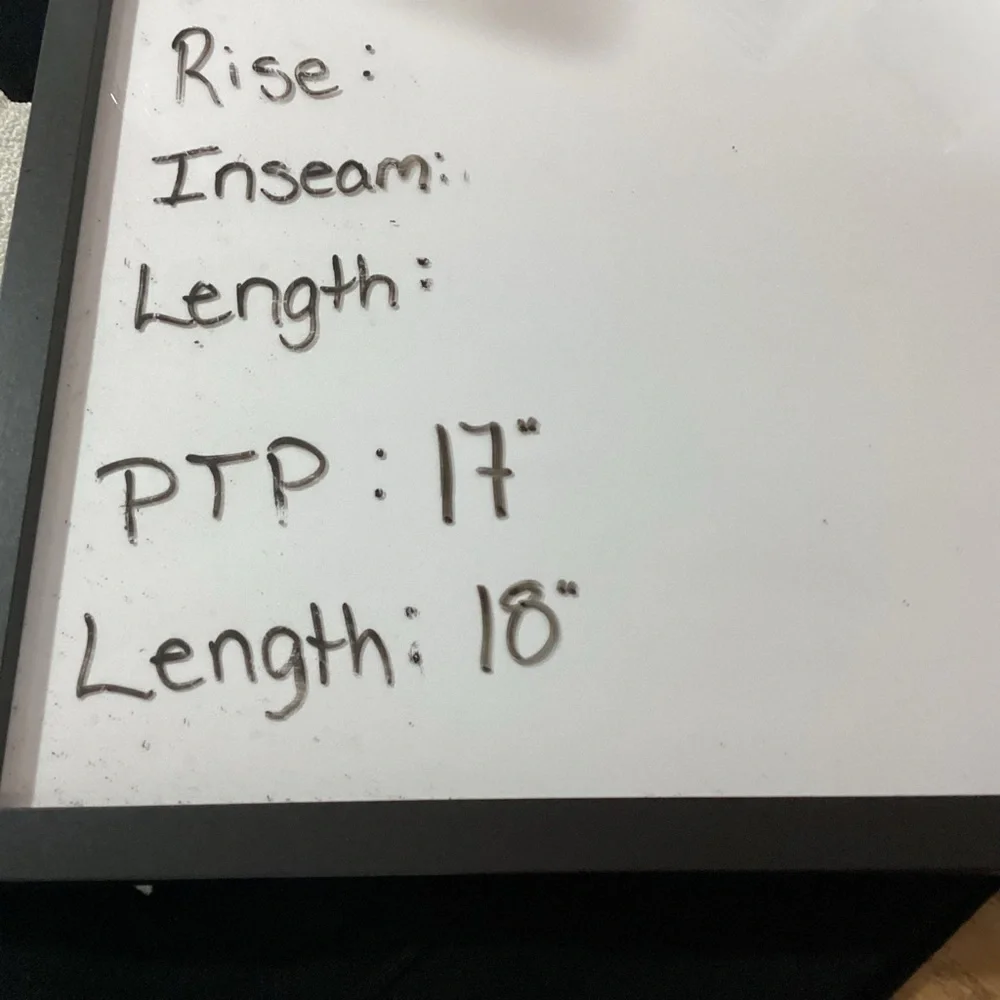 Rise:
Inseam:
Length:
PTP: 17"
Length: 18"